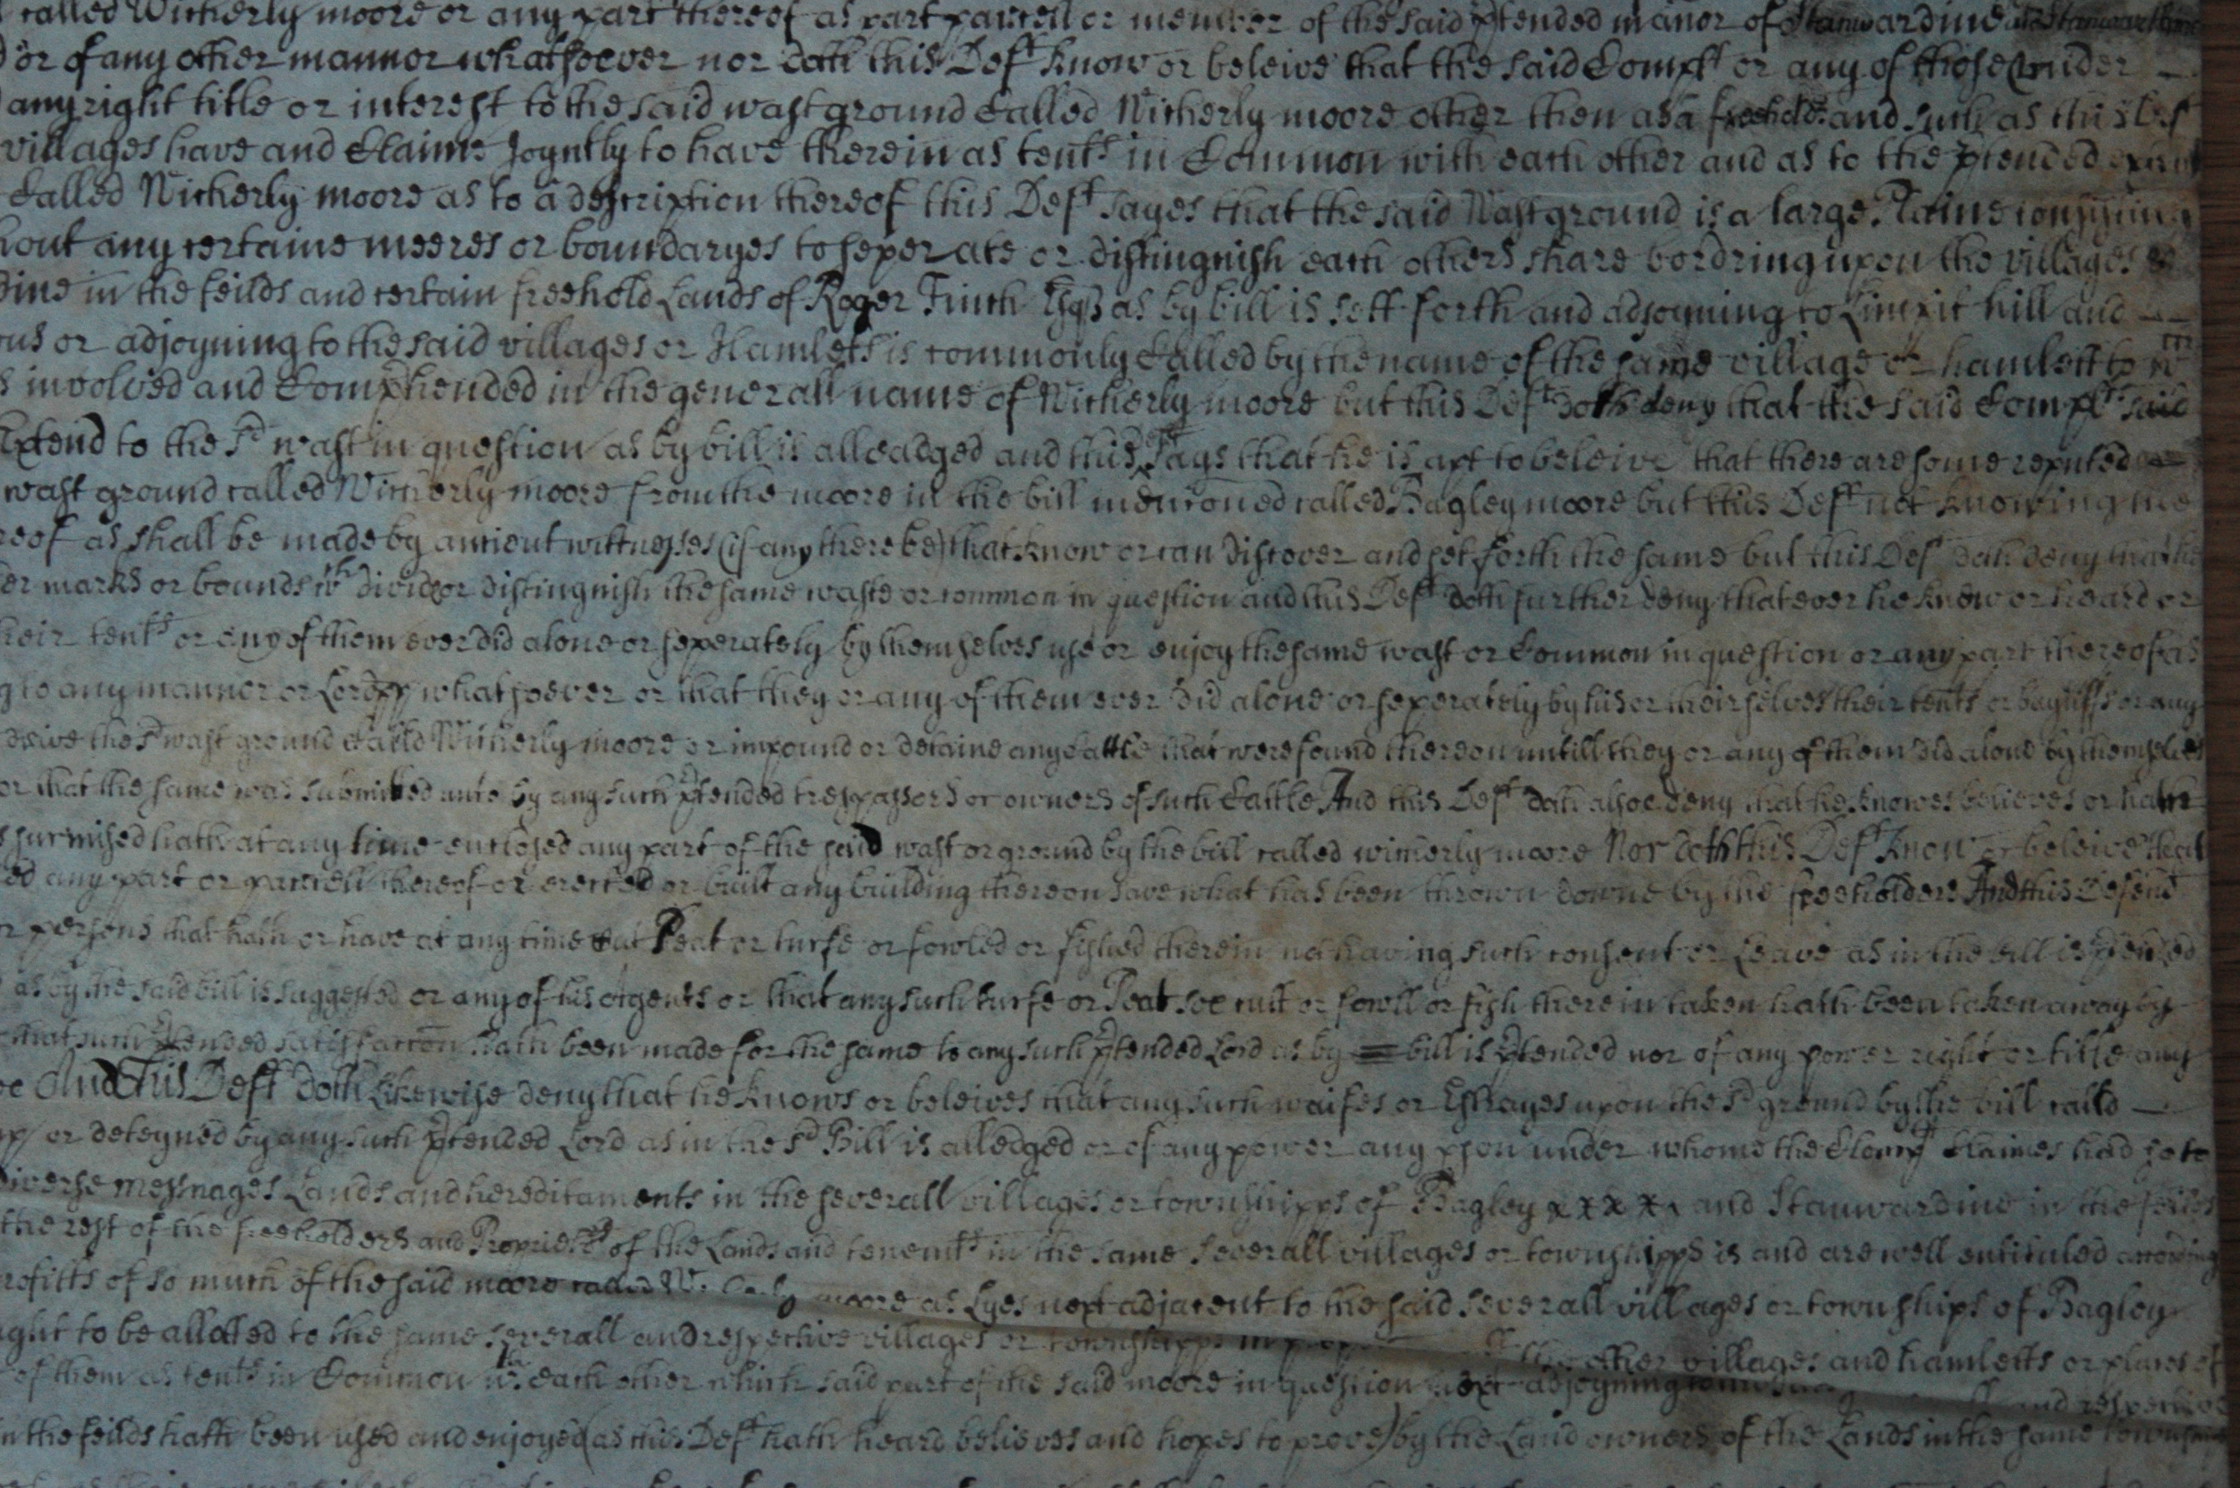 called Witherly moore or any part thereof as part parcell or member of the said ptended manor of Stanwardine
or of any other mannor whatsoever nor doth this Deft know or beleive that the said Complt or any of those under
any right title or interest to the said wast ground Called Witherly moore other then as a freeholdr and such as this Deft
villages have and Claime Joyntly to have therein as tents in Common with each other and as to the ptended
Called Witherly moore as to a description thereof this Deft sayes that the said Wast ground is a large Plaine
hout any certaine meeres or boundaryes to seperate or distinguish each others share bordring upon the villages
dine in the feilds and certain freehold Lands of Roger Finch Esqr as by bill is sett forth and adjoyning to Limpit hill and
or adjoyning to the said villages or Hamletts is commonly Called by the name of the same village or hamlett to wch
involved and Comprhended in the generall name of Witherly moore but this Deft doth deny that the said Complts said
Extend to the sd wast in question as by bill is alleadged and this Deft says that he is apt to beleive that there are some reputed
wast ground called Witherly moore from the moore in the bill menconed called Bagley moore but this Deft not knowing the
reof as shall be made by antient wittnesses (if any there be) that know or can discover and set forth the same but this Deft doth deny that he
er marks or bounds wch divide or distinguish the same waste or common in question and this Deft doth further deny that ever he knew or heard or
heir tents or any of them ever did alone or seperately by themselves use or enjoy the same wast or Common in question or any part thereof as
g to any mannor or Lordpp whatsoever or that they or any of them ever did alone or seperately by his or their selves their tents or bayliffs or any
drive the sd wast ground called Witherly moore or impound or detaine any Cattle that were found thereon untill they or any of them did alone by themselves
or that the same was submitted unto by any such ptended trespassers or owners of such Cattle And this Deft doth alsoe deny that he knowes believes or hath
surmised hath at any time enclosed any part of the said wast or ground by the bill called witherly moore Nor doth this Deft know or beleive that
ed any part or parcell thereof or erected or built any building thereon save what has been thrown downe by the freeholders And this Defend
r persons that hath or have at any time Cut Peat or turfe or fowled or fished therein not having such consent or Leave as in the bill is ptended
as by the said bill is suggested or any of his Agents or that any such turfe or Peat soe cutt or fowll or fish there in taken hath been taken away by
that such ptended satisfaccon hath been made for the same to any such ptended Lord as by bill is ptended nor of any power right or title any
And This Deft doth Likewise deny that he knows or beleives that any such waifes or Estrayes upon the sd ground by the bill calld
or deteyned by any such ptended Lord as in the sd Bill is alledged or of any power any pson under whome the Complt Claimes had
diverse messuages Lands and hereditaments in the severall villages or townshipps of Bagley x x x x and Stanwardine in the feilds
the rest of the freeholders and Proprietrs of the Lands and tenemts in the same severall villages or townshipps is and are well entituled according
rofitts of so much of the said moore called moore as Lyes next adjacent to the said severall villages or townships of Bagley
ught to be allotted to the same severall and respective villages or townshipps other villages and hamletts or places of
of them as tents in Common wth each other which said part of the said moore in question next adjoyning and respective
n the feilds hath been used and enjoyed (as this Deft hath heard believes and hopes to prove) by the Land owners of the Lands in the same